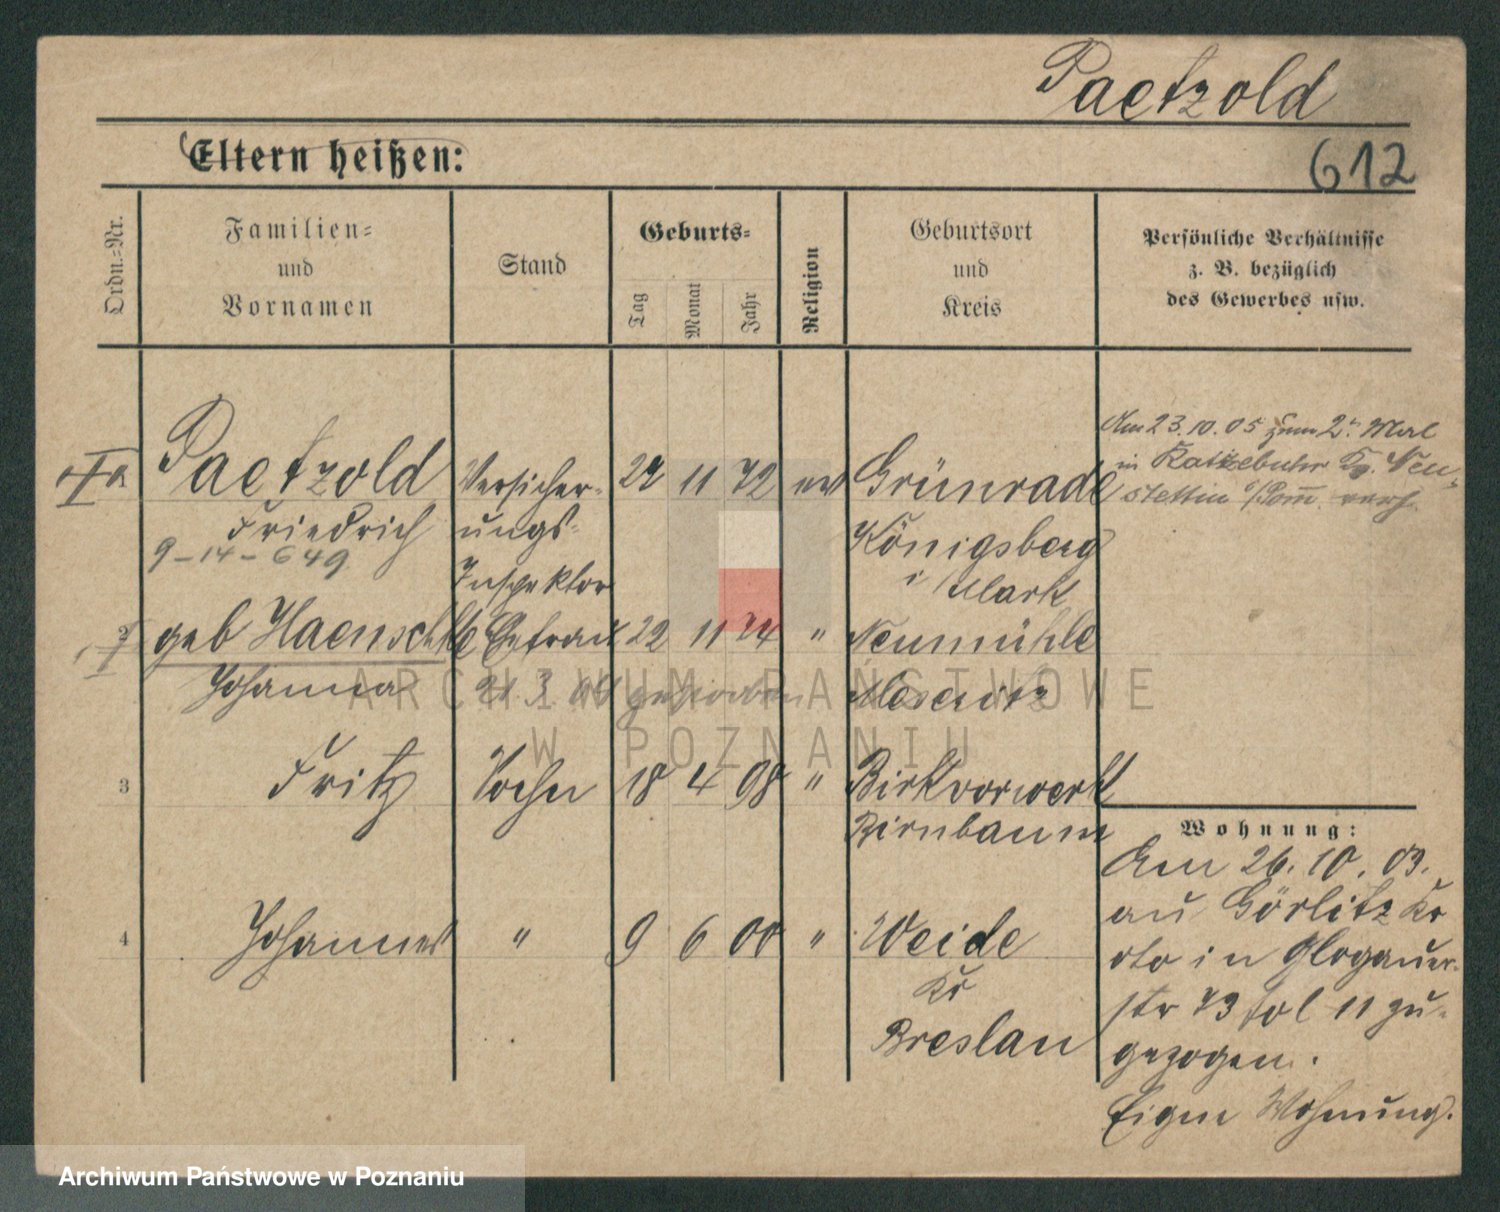 Paetzold
Eltern heißen:
612
Ordn.-Nr.
Familien-
und
Vornamen
Stand
Geburts-
Tag
Monat
Jahr
Religion
Geburtsort
und
Kreis
Persönliche Verhältnisse
z. B. bezüglich
des Gewerbes usw.
Paetzold Versicher- 11 72 ev Grünrade
Friedrich ungs- Königsberg
9-14-649 Inspektor i/Mark
Am 23.10.05 zum 2. Mal
in Ratzebuhr Neu-
stettin
2 geb Ehefrau 22 11 74 " Neumühle
Johanna gestorben Meseritz
3 Fritz Sohn 18 4 98 " Birkvorwerk
Birnbaum
4 Johannes " 9 6 00 " Weide
Kr
Breslau
Wohnung:
Am 26.10.03.
au Görlitz Kr
oto in Glogauer-
str 73 fol 11 zu-
gezogen.
Eigne Wohnung.
ARCHIWUM PAŃSTWOWE
W POZNANIU
Archiwum Państwowe w Poznaniu